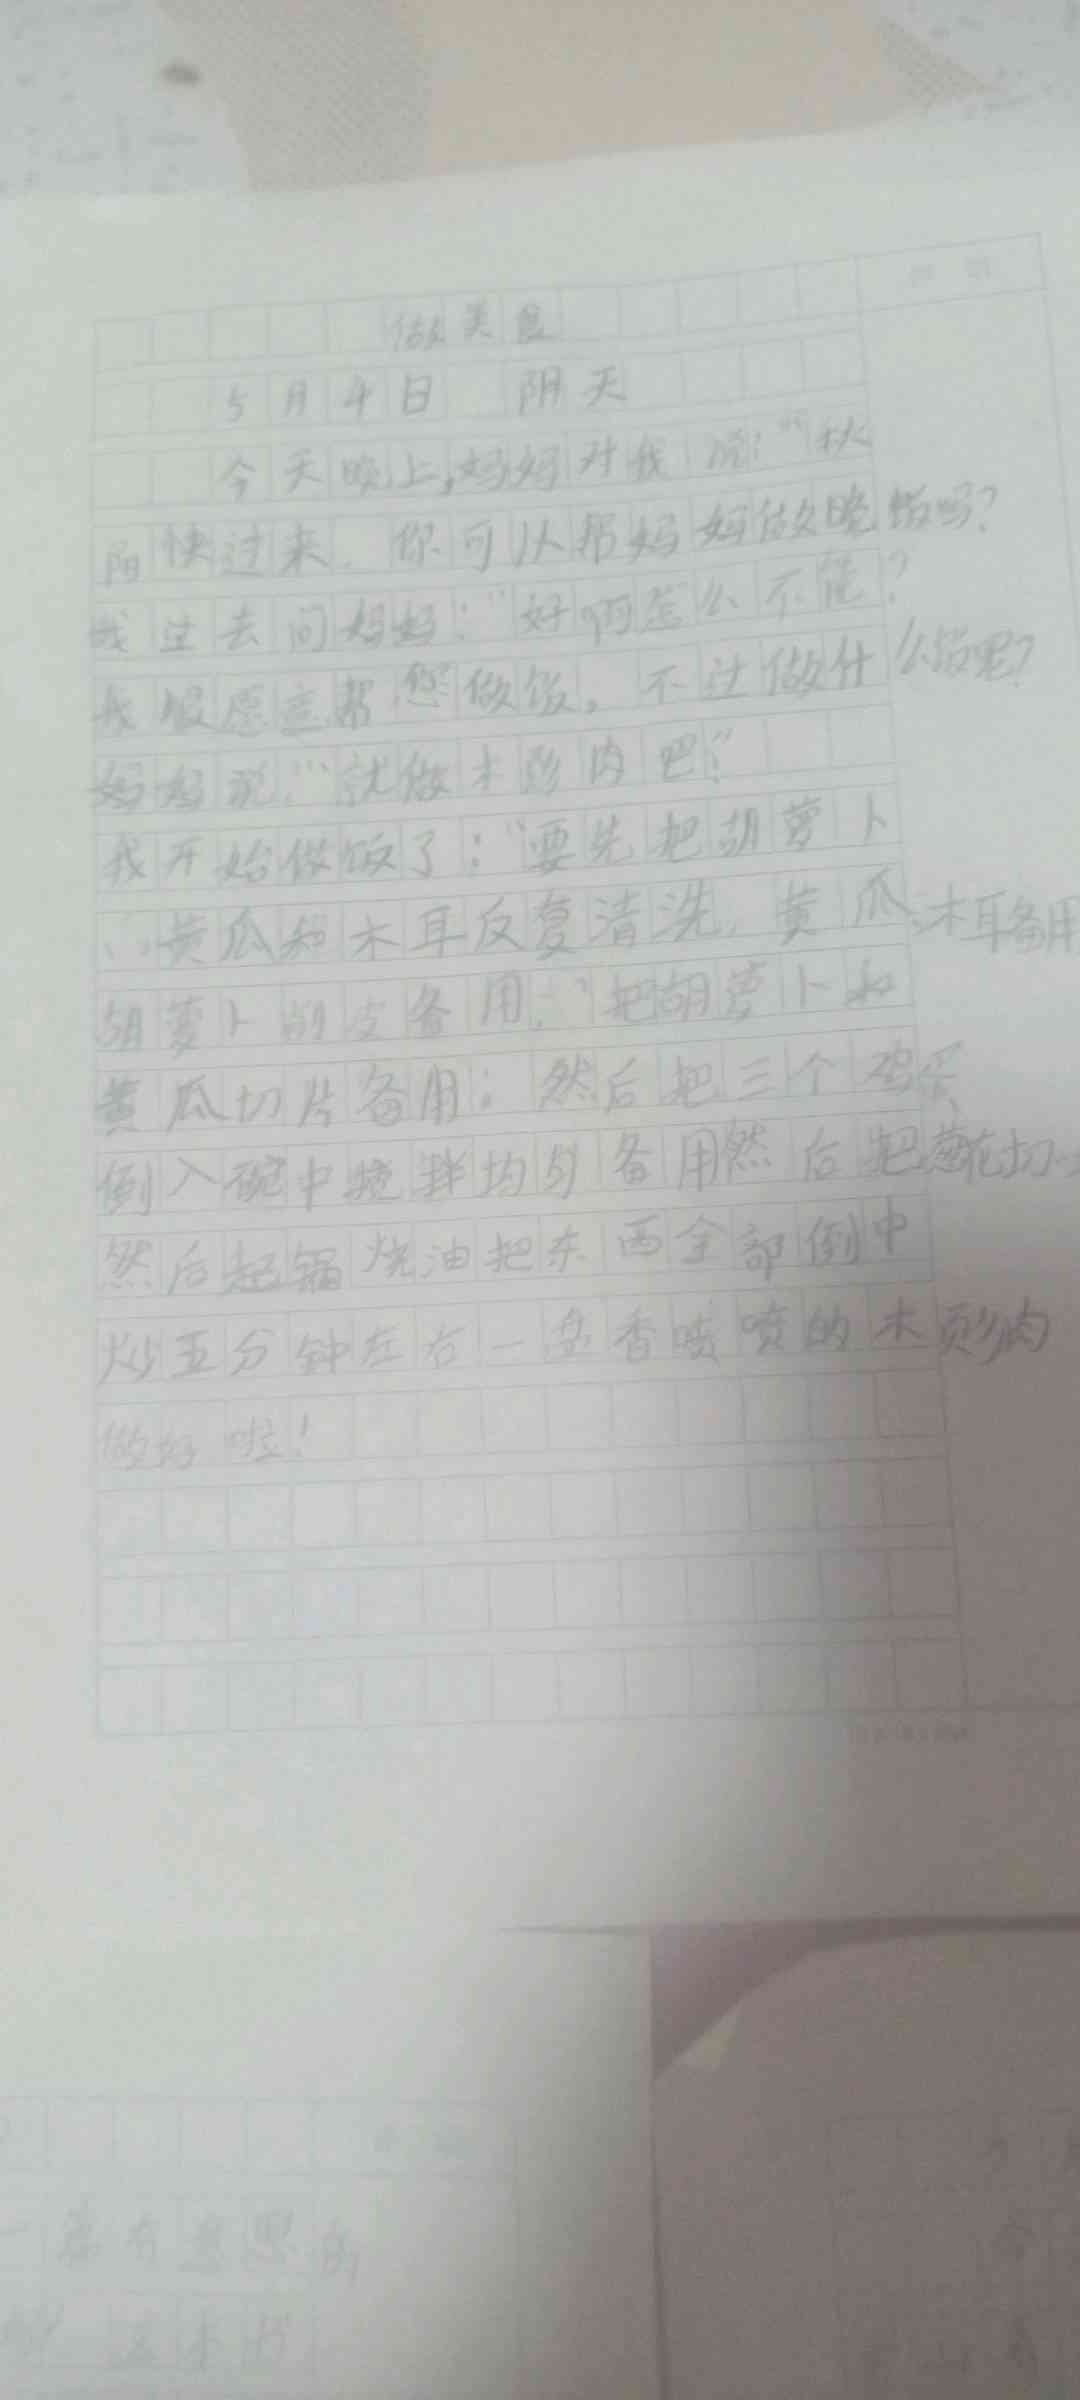 做美食
5月4日 阴天
今天晚上,妈妈对我说:“秋
阳快过来.你可以帮妈妈做晚饭吗?
我过去问妈妈:“好啊怎么不能?
我很愿意帮您做饭,不过做什么饭呢?
妈妈说:“就做木须肉吧!”
我开始做饭了:“要先把胡萝卜
、黄瓜和木耳反复清洗,黄瓜、木耳备用
胡萝卜削皮备用;把胡萝卜和
黄瓜切片备用;然后把三个鸡蛋
倒入碗中搅拌均匀备用然后把葱花切
然后起锅烧油把东西全部倒中
炒五分钟左右一盘香喷喷的木须肉
做好啦!
一篇有意思的
这本书